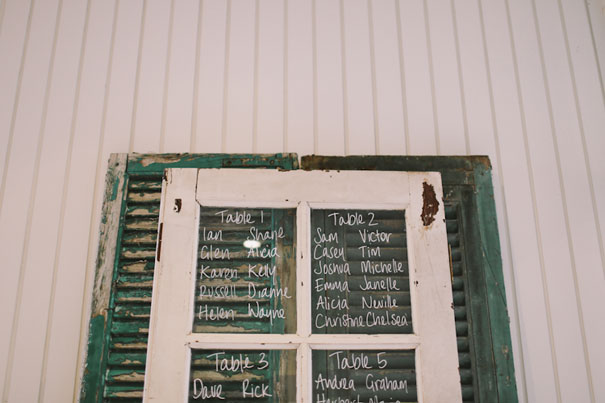 Table 1
Ian Shane
Glen Alicia
Karen Kelly
Russell Dianne
Helen Wayne
Table 2
Sam Victor
Casey Tim
Joshua Michelle
Emma Janelle
Alicia Neville
Christine Chelsea
Table 3
Dave Rick
Table 5
Andrea Graham